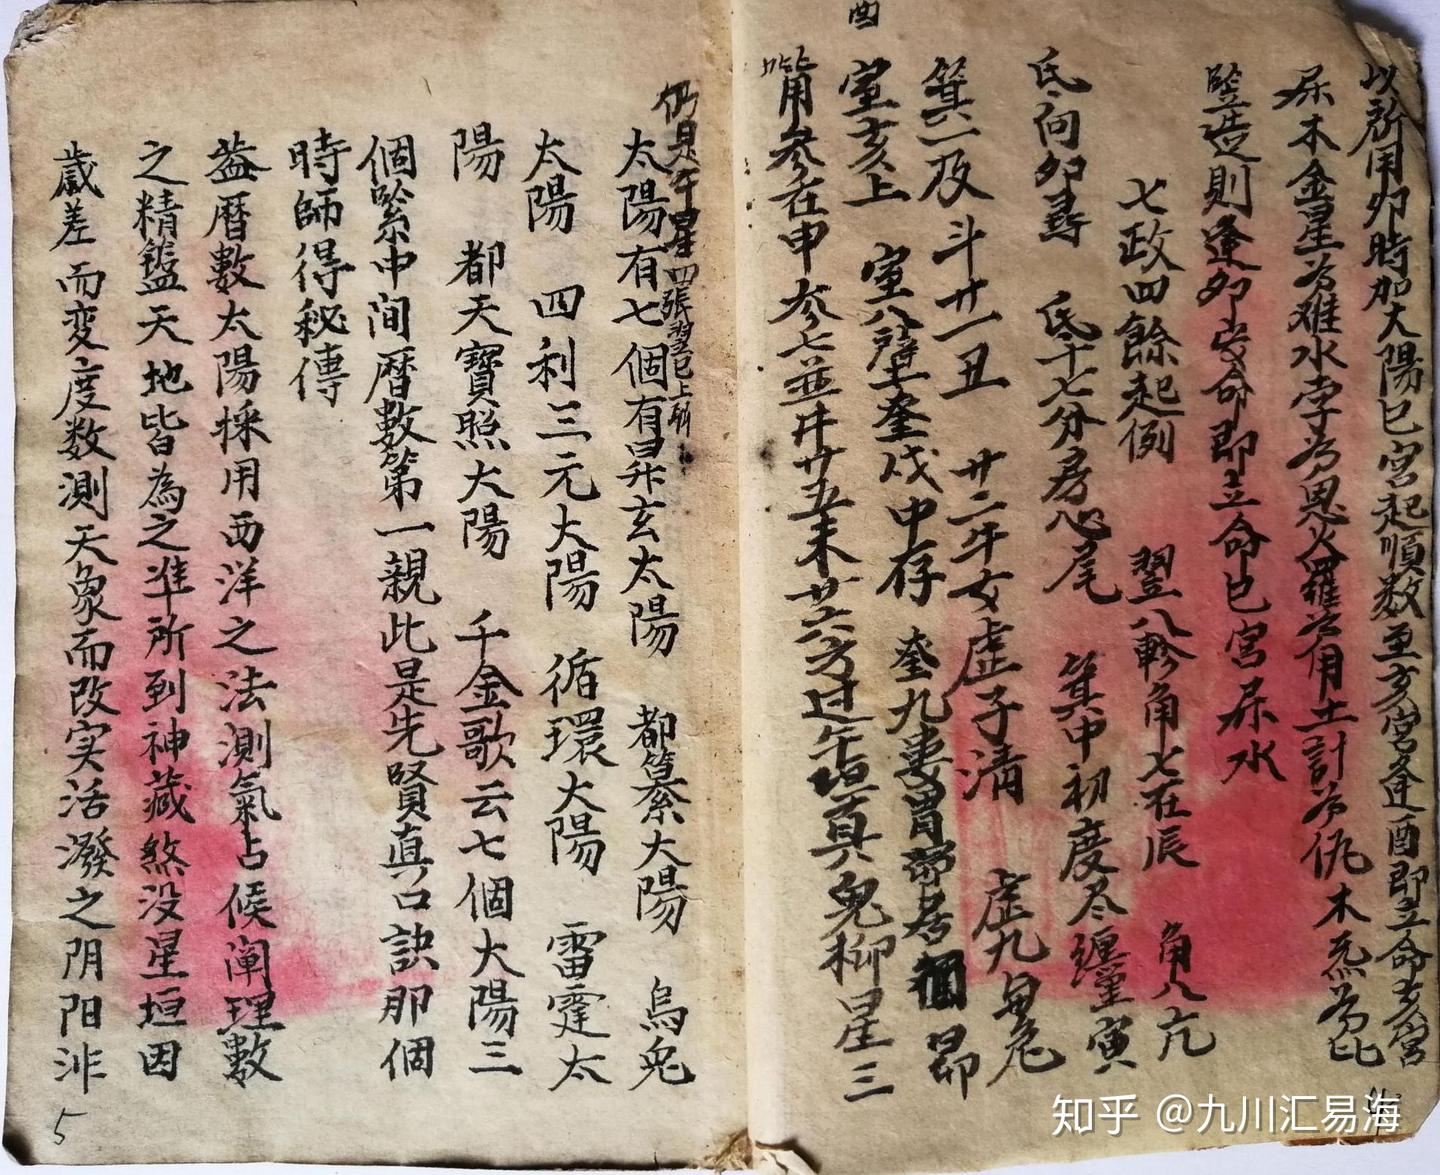 酉
以所用卯時加太陽巳宮起順数至亥宮逢酉即立命亥宮
屬木金星为难水孛为恩火羅为用土計为仇木炁为比
豎造則逢卯安命即立命巳宮屬水
七政四餘起例 翌八軫角七在辰 角八亢
氐向卯尋 氐十七分房心尾 箕中初度尽纏寅
箕一及斗廿一丑 廿二牛女虛子清 虛九
室亥上 室八壁奎戌中存 奎九婁胃 昴
觜参在申 参七並井廿五未 廿六方过午垣真鬼柳星三
仍是午星四張翌巳上
太陽有七個有昇玄太陽 都纂太陽 烏兎
太陽 四利三元太陽 循環太陽 雷霆太
陽 都天寶照大陽 千金歌云七個大陽三
個緊中间暦數第一親此是先賢真口訣那個
時師得秘傳
葢暦數太陽採用西洋之法測氣占候阐理數
之精盤天地皆為之准所到神藏煞没星垣因
歳差而变度数測天象而改实活潑之阴阳非
5
知乎 @九川汇易海